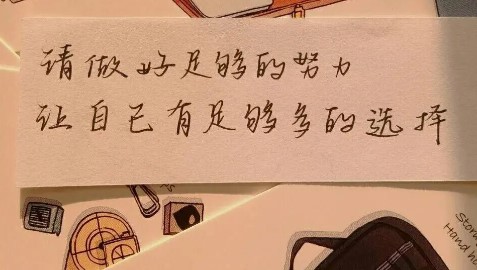 请做好足够的努力
让自己有足够多的选择
Hand